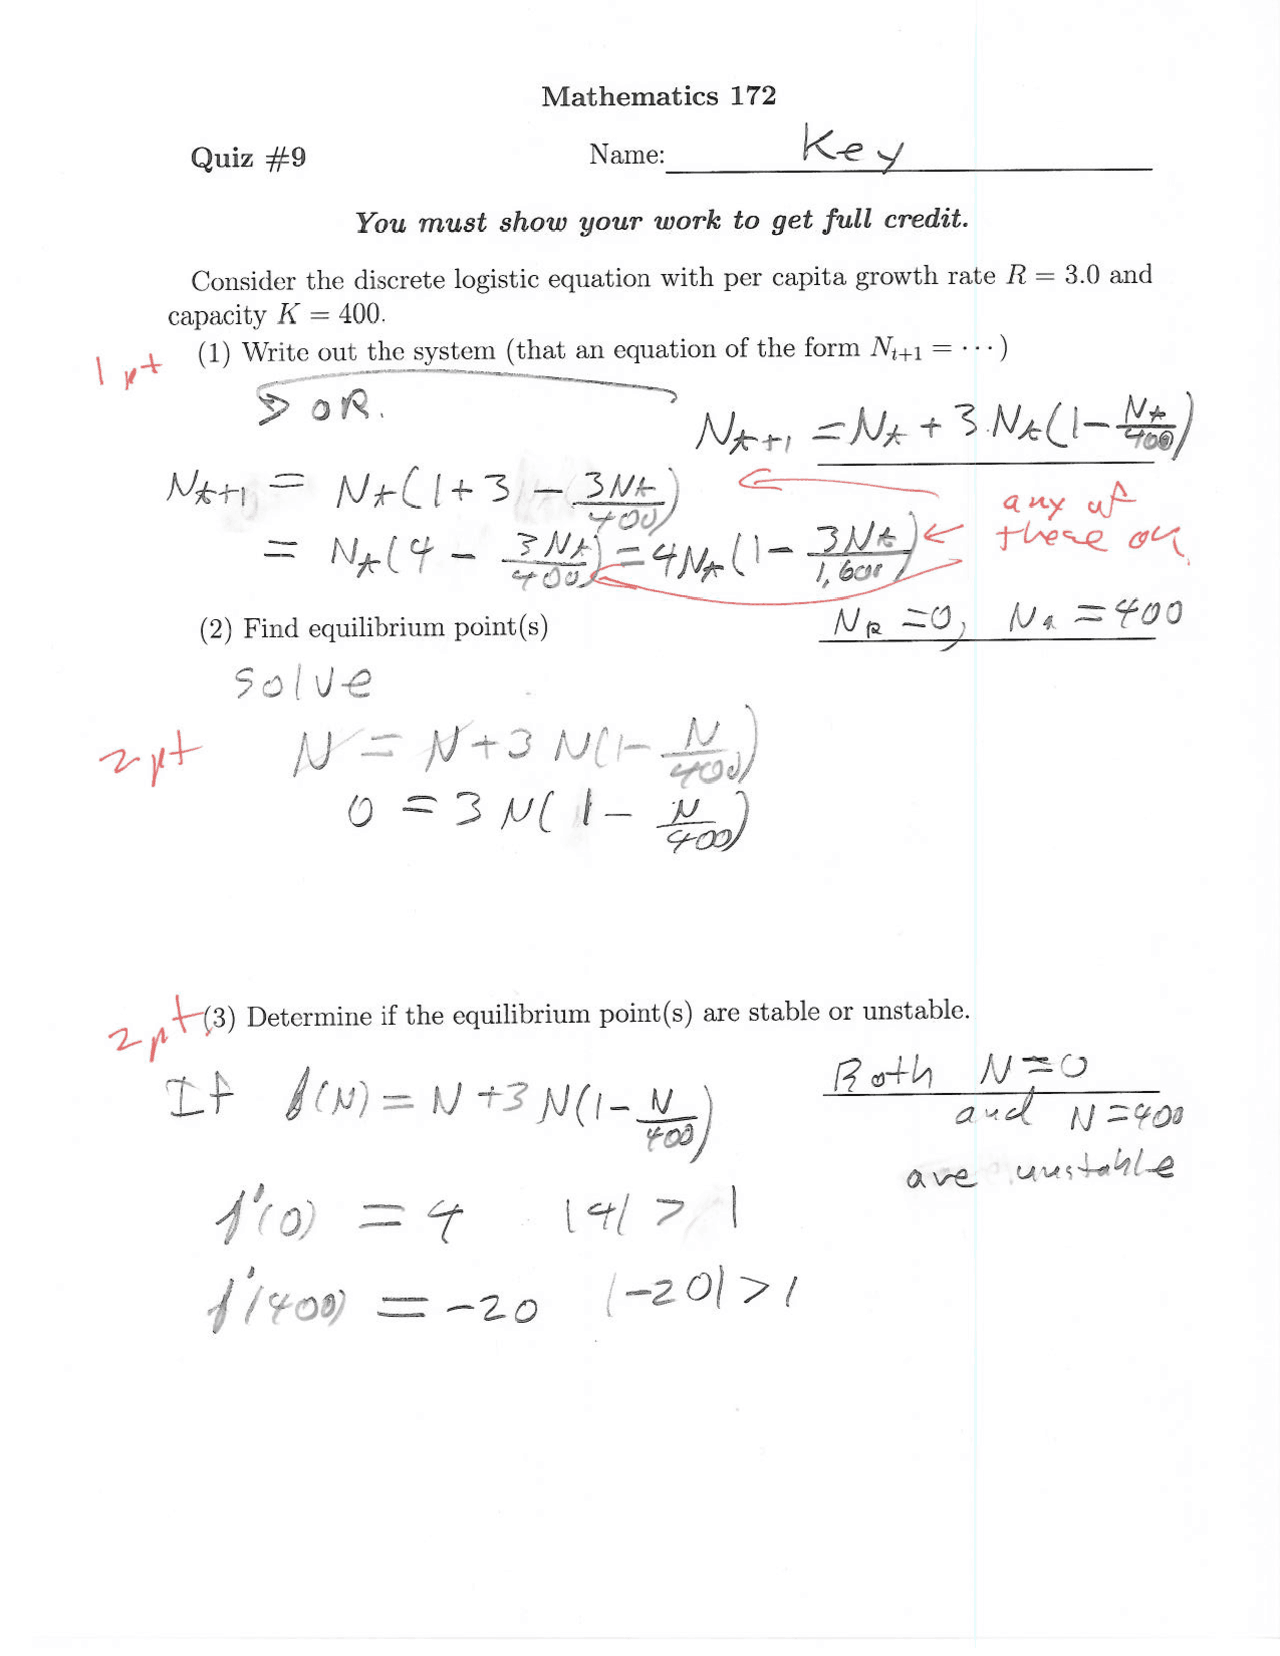 Mathematics 172
Quiz #9 Name: Key
You must show your work to get full credit.
Consider the discrete logistic equation with per capita growth rate R = 3.0 and
capacity K = 400.
1 pt (1) Write out the system (that an equation of the form N_{t+1} = ⋯)
OR.
N_{t+1} = N_t + 3 N_t(1 - N_t/400)
N_{t+1} = N_t(1 + 3 - 3N_t/400)
any of
these ok
= N_t(4 - 3N_t/400) = 4N_t(1 - 3N_t/1,600)
(2) Find equilibrium point(s) N_* = 0, N_* = 400
Solve
2 pt N = N + 3 N(1 - N/400)
0 = 3 N(1 - N/400)
2 pt (3) Determine if the equilibrium point(s) are stable or unstable.
If f(N) = N + 3 N(1 - N/400)
Both N = 0
and N = 400
are unstable
f'(0) = 4 |4| > 1
f'(400) = -20 |-20| > 1